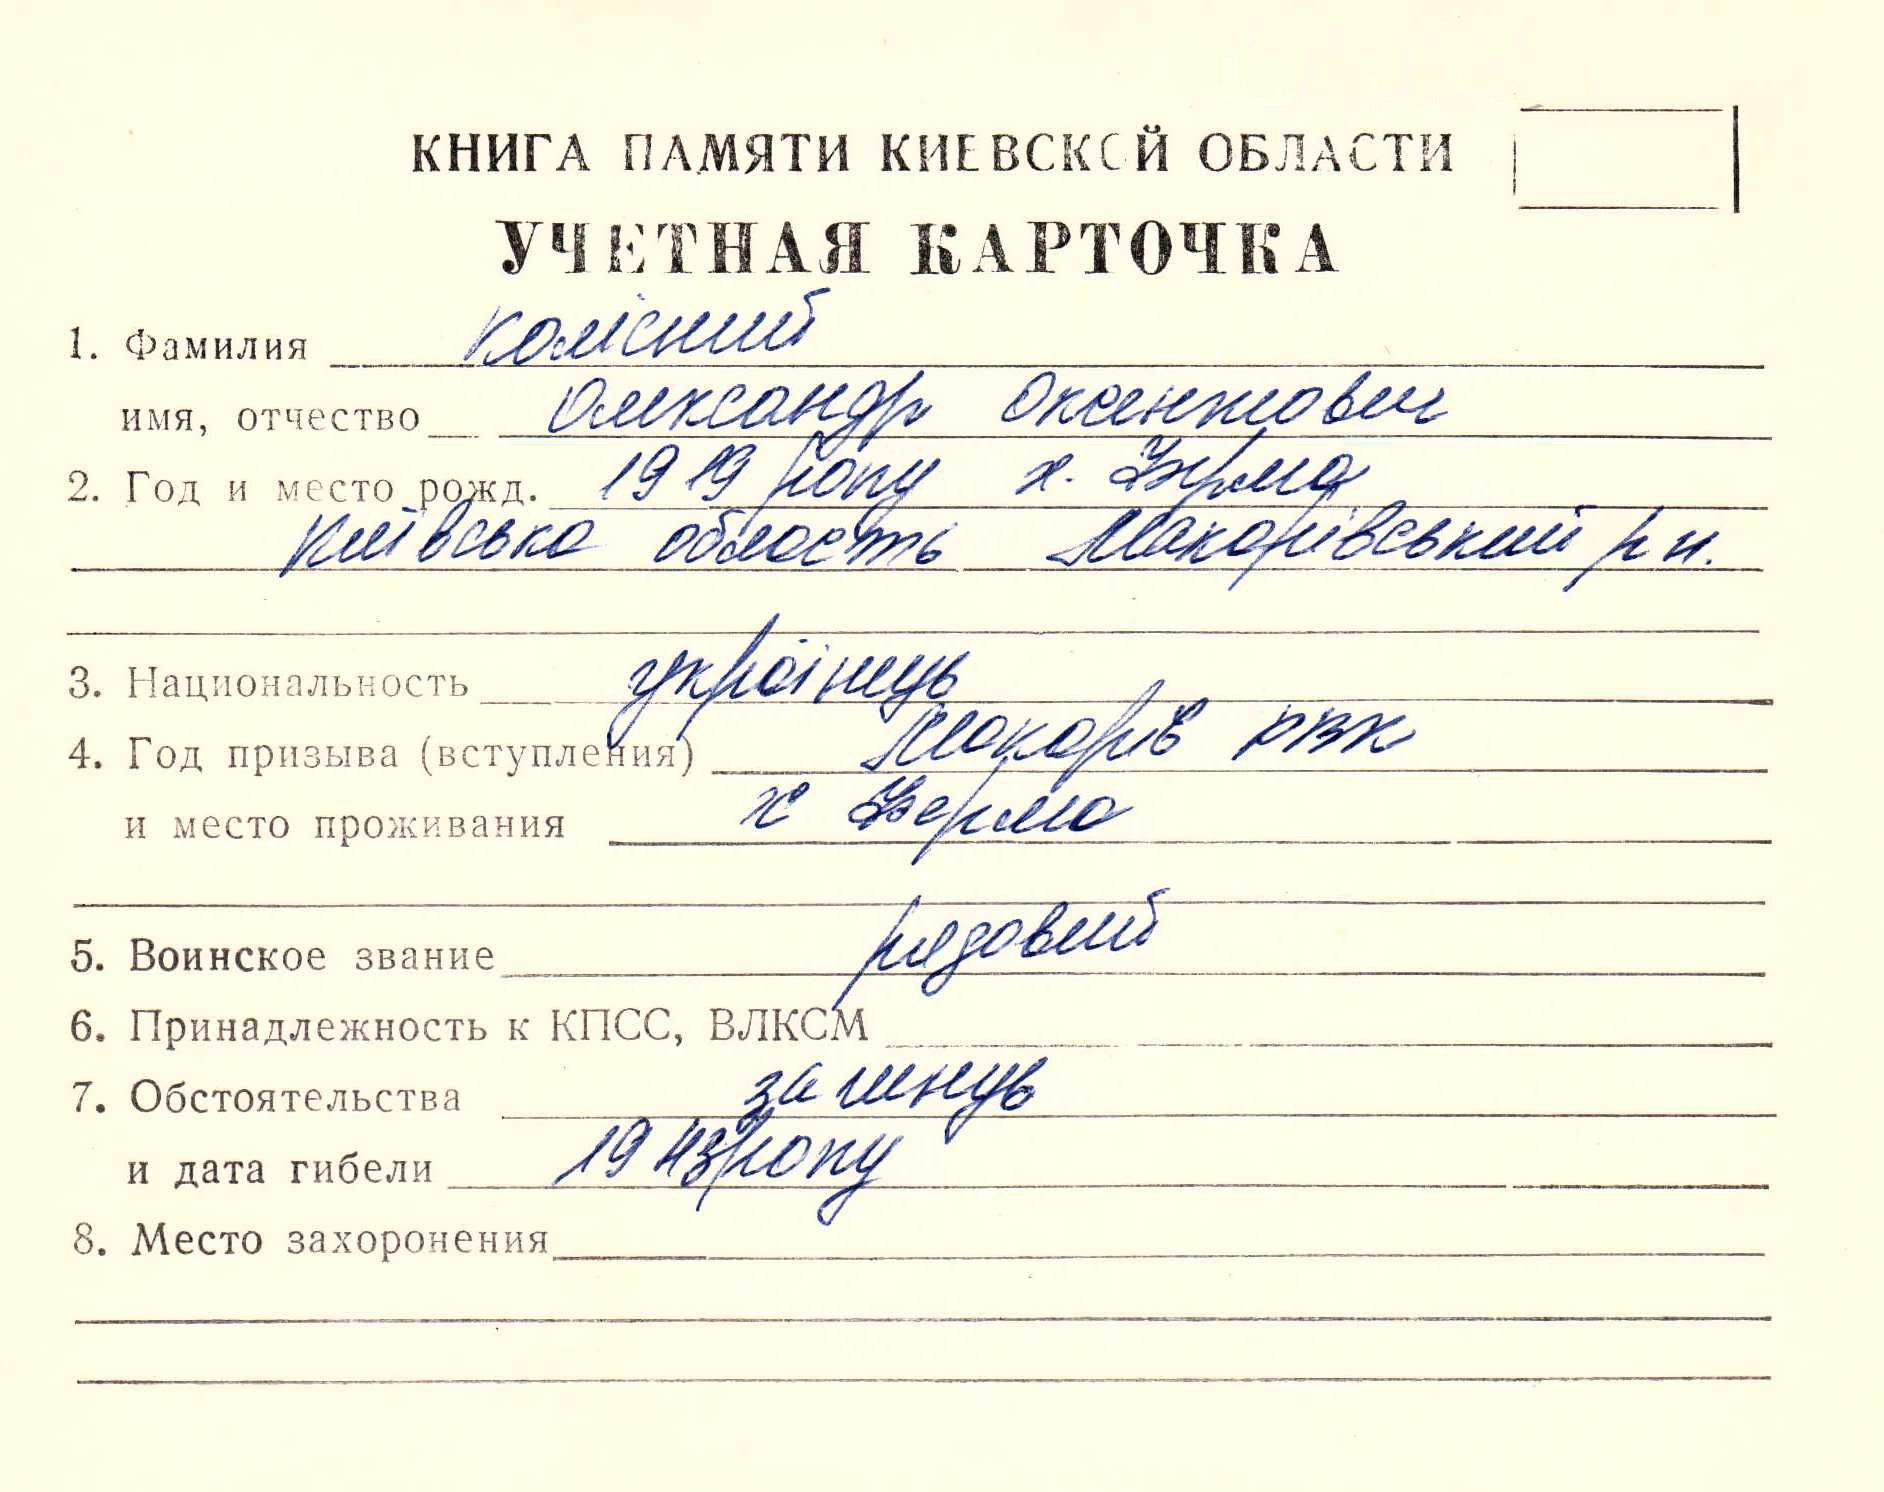 КНИГА ПАМЯТИ КИЕВСКОЙ ОБЛАСТИ
УЧЕТНАЯ КАРТОЧКА
1. Фамилия Колісний
имя, отчество Олександр
2. Год и место рожд. 1919 року х.
Київська область Макарівський р н.
3. Национальность українець
4. Год призыва (вступления) Макарів РВК
и место проживания х Ферма
5. Воинское звание рядовий
6. Принадлежность к КПСС, ВЛКСМ
7. Обстоятельства загинув
и дата гибели 1943 року
8. Место захоронения